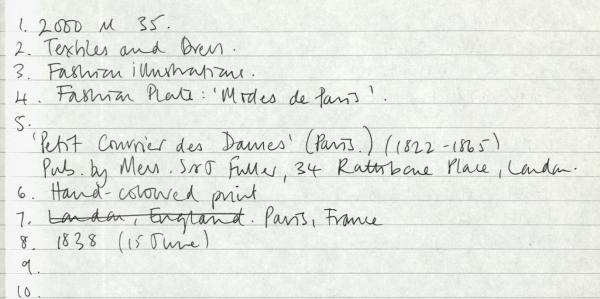 1. 2000 M 35.
2. Textiles and Dress.
3. Fashion illustrations.
4. Fashion Plate: 'Modes de Paris'.
5.
'Petit Courrier des Dames' (Paris.) (1822-1865)
Pub. by Mess. S & J Fuller, 34 Rathbone Place, London.
6. Hand-coloured print
7. London, England. Paris, France
8. 1838 (15 June)
9.
10.